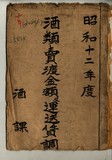 昭和十二年度
酒類賣渡金額運送賃調
酒課